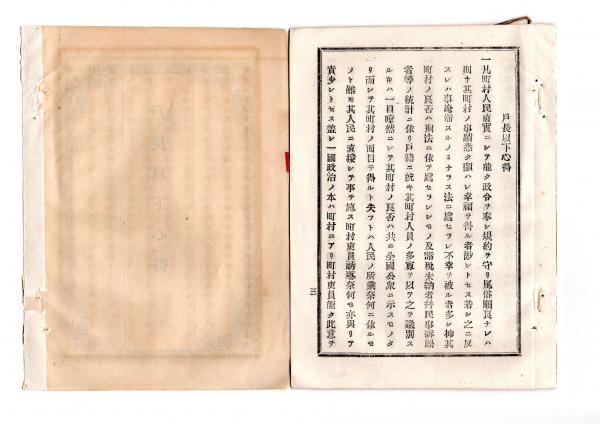 戸長以下心得
一凡町村人民質實ニシテ能ク政令ヲ奉シ規約ヲ守リ風俗順良ナレハ
則チ其町村ノ事蹟悉ク顯ハレ幸福ヲ得ル者尠シトセス若シ之ニ反
スレハ事淹滞スルノミナラス法ニ處セラレ不幸ヲ被ル者多シ抑其
町村ノ良否ハ刑法ニ依テ處セラレシモノ及諸税未納者并民事訴訟
者等ノ統計ニ依リ戸籍ニ就キ其町村人員ノ多寡ヲ以テ之ヲ識別ス
ル時ハ一目瞭然ニシテ其町村ノ良否ハ共ニ全國公衆ニ示スモノタ
リ而シテ其町村ノ面目ヲ得ルト失フトハ人民ノ所業奈何ニ依ルモ
ノト雖モ其人民ニ直接シテ事ヲ施ス町村吏員誘導奈何モ亦與リテ
責少シトセス蓋シ一國政治ノ本ハ町村ニアリ町村吏員能ク此意ヲ
三